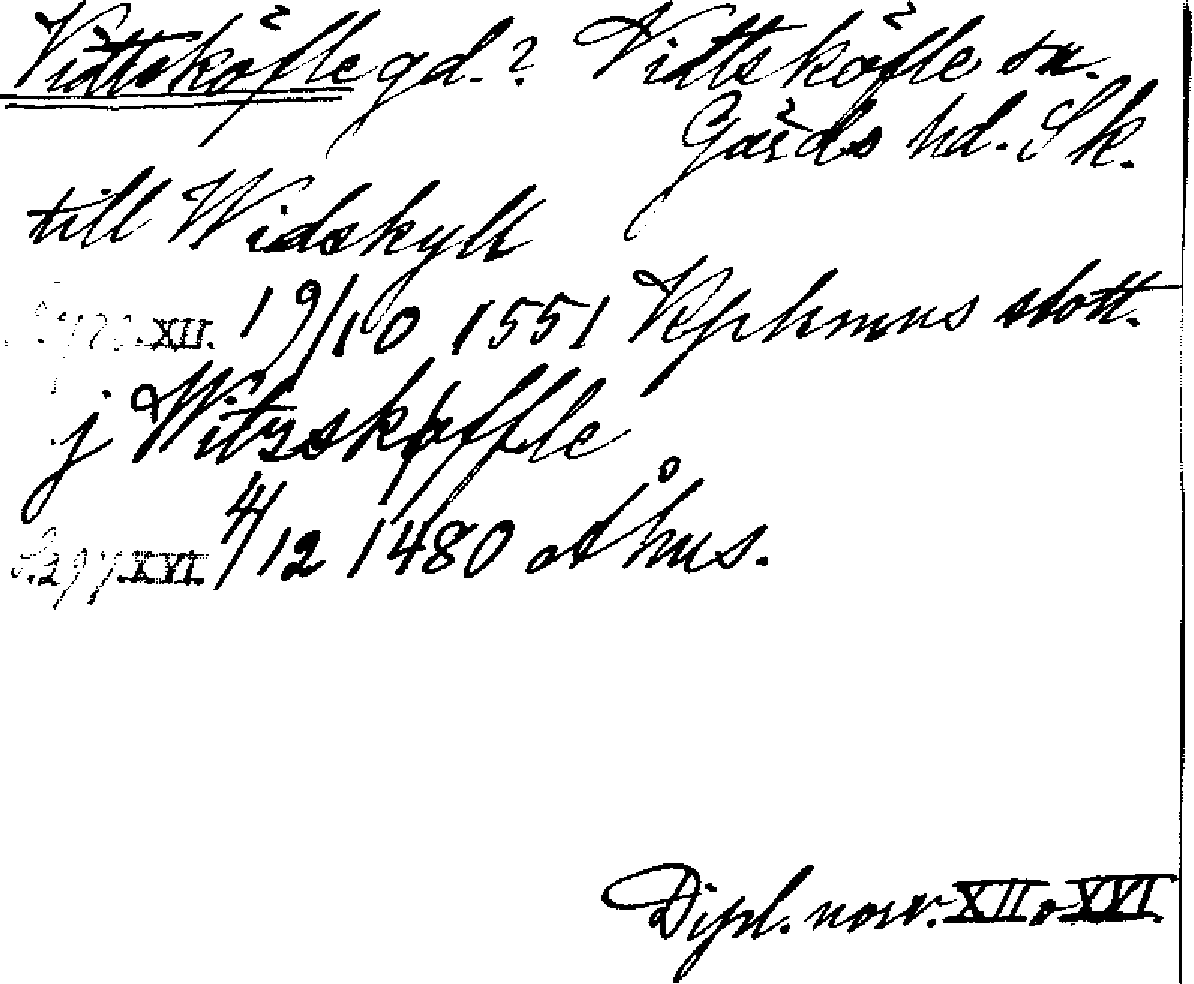 Vittsköfle gd.? Vittsköfle sn.
Gärds hd. Sk.
till Widskyll
XII. 19/10 1551 Kphmns slott.
j Witzskøffle
S. 297. XVI. 4/12 1480 Åhus.
Dipl. norv. XII o XVI.